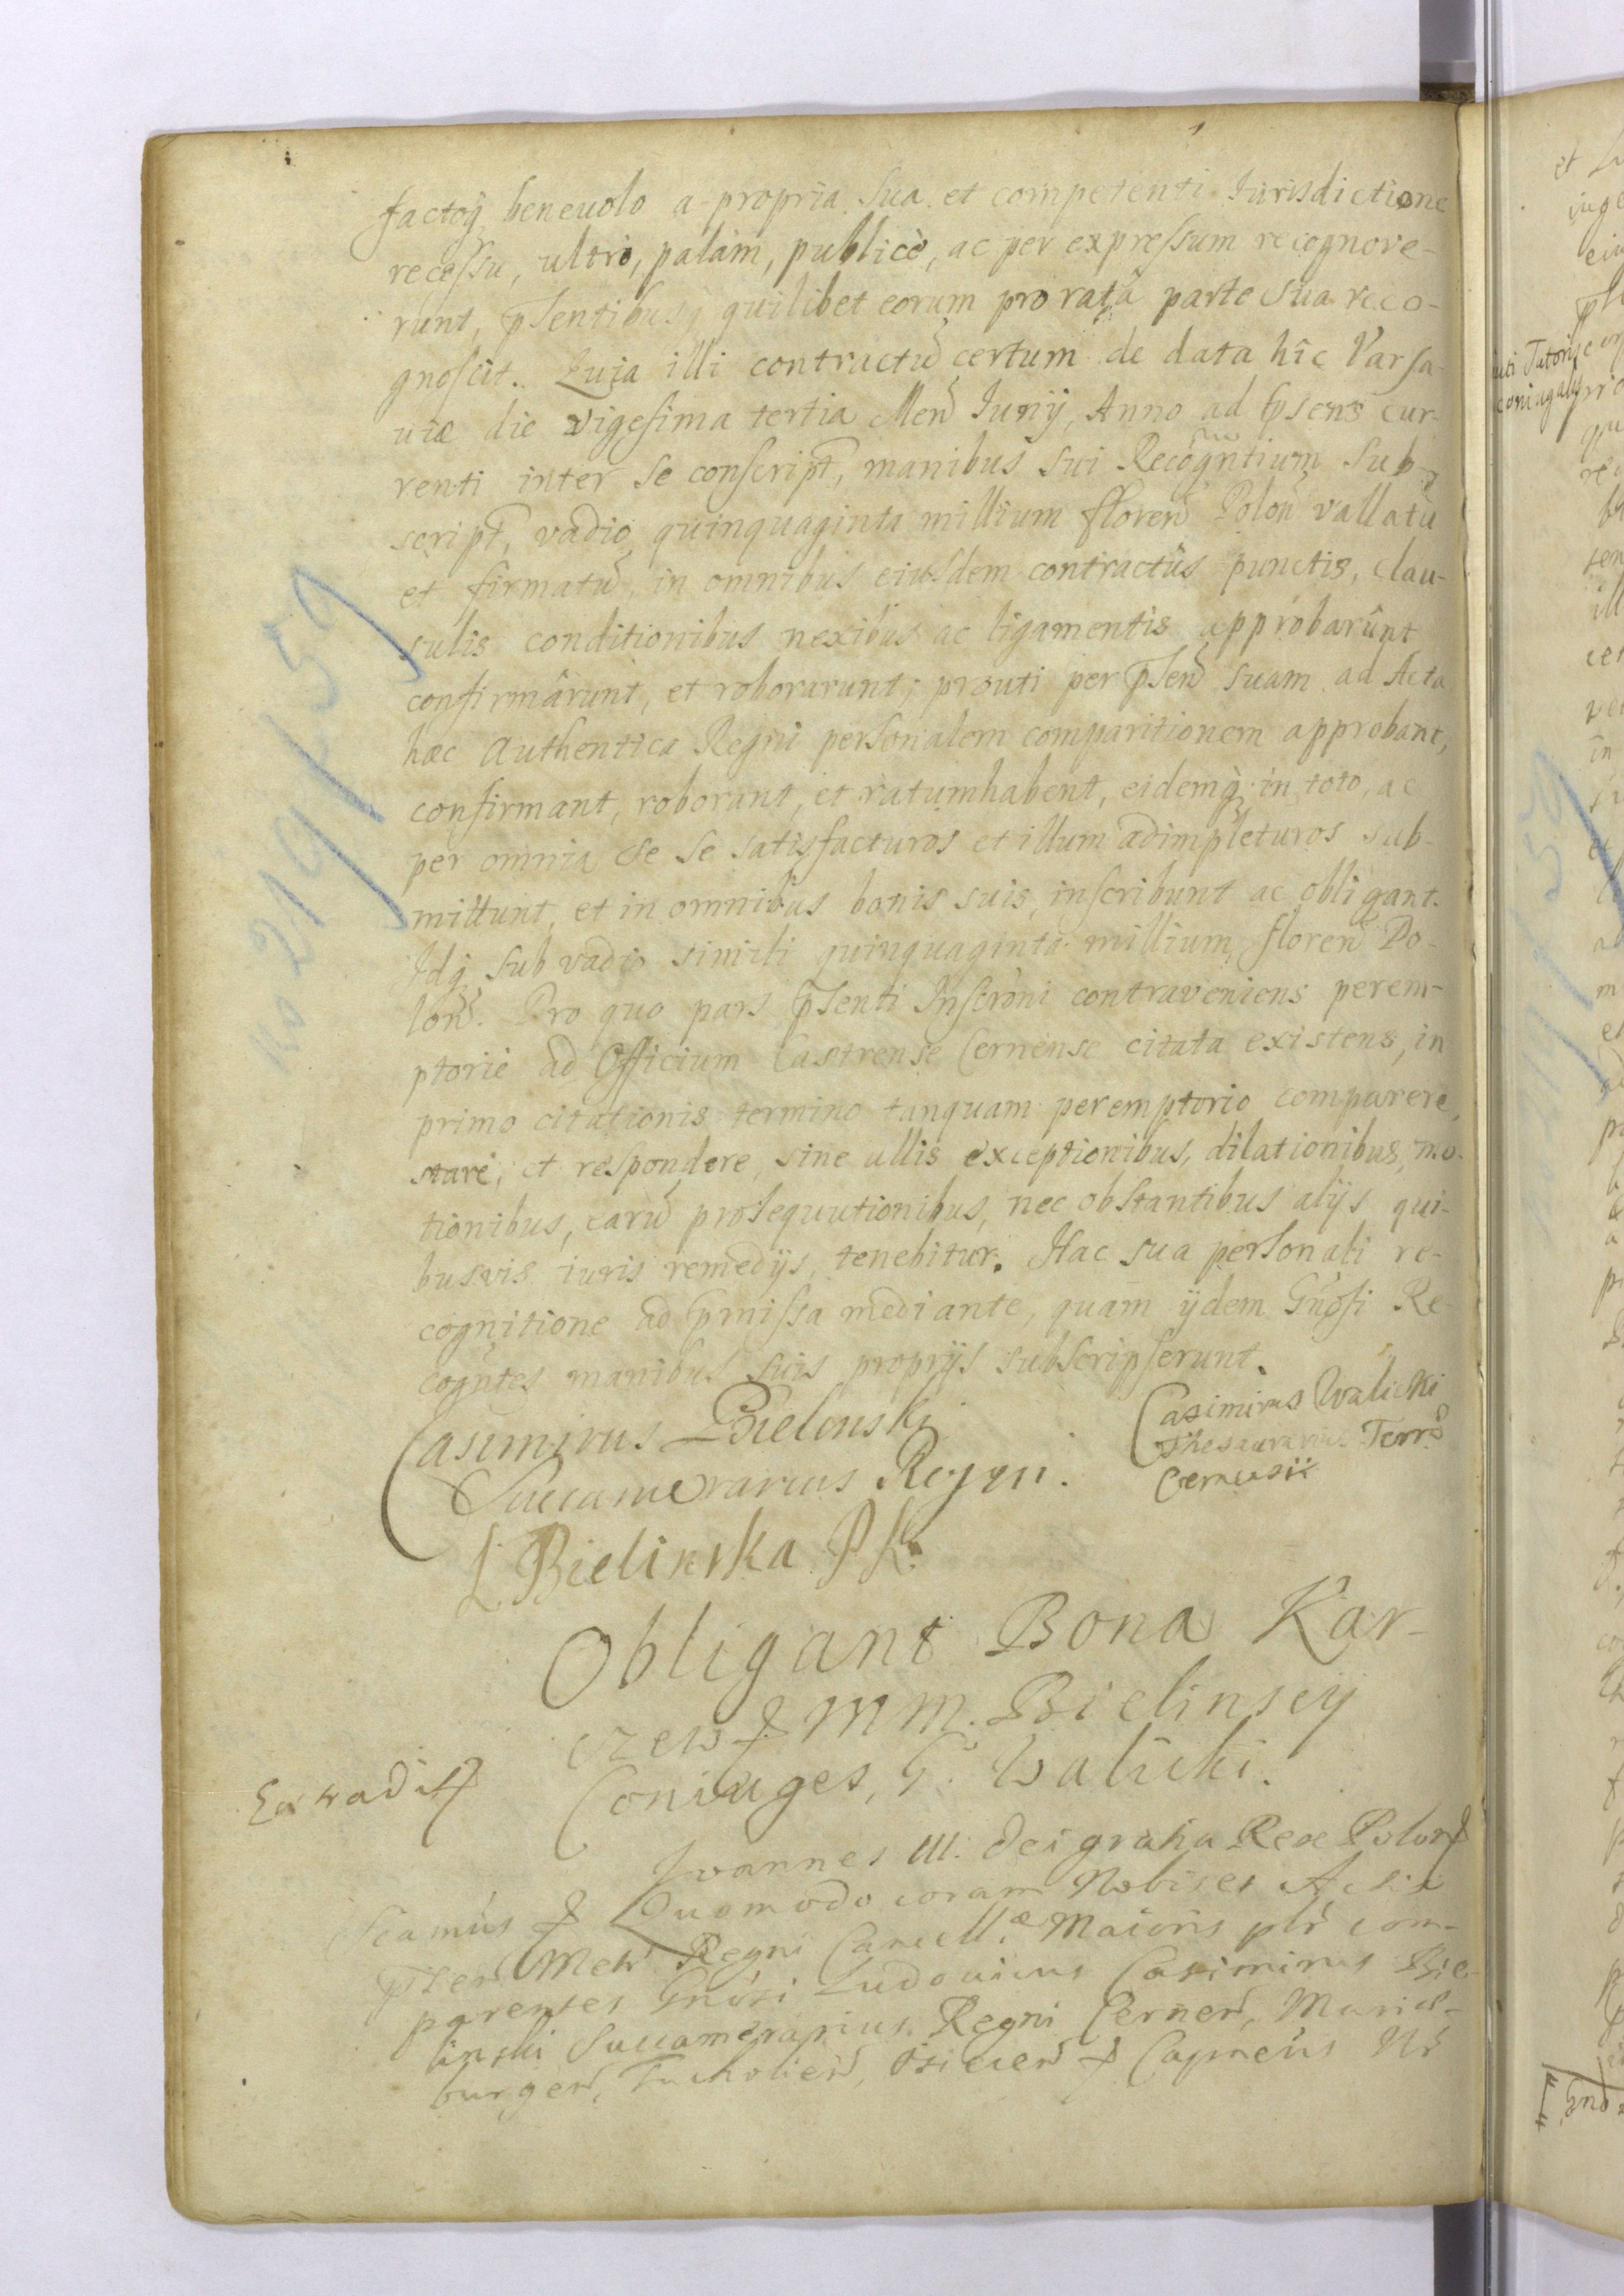 factoq, benevolo a propria sua et competenti Iurisdictione
recessu, ultrò, palàm, publicè, ac per expressum recognove-
runt, pñsentibusq, quilibet eorum pro rata parte sua reco-
gnoscit. Quia illi contractū certum de data hîc Varsa-
viæ die vigesima tertia Meñ Iunij, Anno ad pñsens cur-
renti inter se conscript, manibus sui Recogñtium sub-
script, vadio quinquaginta millium floreñ Poloñ vallatū
et firmatū, in omnibus eiusdem contractûs punctis, clau-
sulis conditionibus nexibus ac ligamentis approbarûnt
confirmârunt, et roborarunt; prouti per pñseñ suam ad Acta
hæc Authentica Regni personalem comparitionem approbant,
confirmant, roborant, et ratumhabent, eidemq, in toto, ac
per omnia se se satisfacturos et illum adimpleturos sub-
mittunt, et in omnibus bonis suis, inscribunt ac obligant.
Idq, sub vadio simili quinquaginta millium floreñ Po-
loñ. Pro quo pars pñsenti Inscrõni contraveniens perem-
ptoriè ad Officium Castrense Cernense citata existens, in
primo citationis termino tanquam peremptorio comparere,
stare, et respondere, sine ullis exceptionibus, dilationibus, mo-
tionibus, earū prosequutionibus, nec obstantibus alijs qui-
busvis iuris remedijs, tenebitur. Hac sua personali re-
cognitione ad pmissa mediante, quam ijdem Gñosi Re-
cogñtes manibus suis proprijs subscripserunt.
Casimirus Bielinski
Succamerarius Regni.
Casimirus Walicki
Thesaurarius Terræ
Cernensis
L Bielinska PK.
Obligant Bona Kar-
czew MM. Bielinscÿ
Coniuges, G. Walicki.
Extradit
Ioannes III. Dei gratia Rex Polon
Scamus Quomodo coram Nobis et Actis
pñseñ Metr Regni Cancellæ Maioris plr com-
parentes Gñosi Ludovicus Casimirus Bie-
linski Succamerarius Regni Cerneñ, Mariæ-
burgeñ, Tucholieñ, Osieceñ Capneus Nr
No 219/59